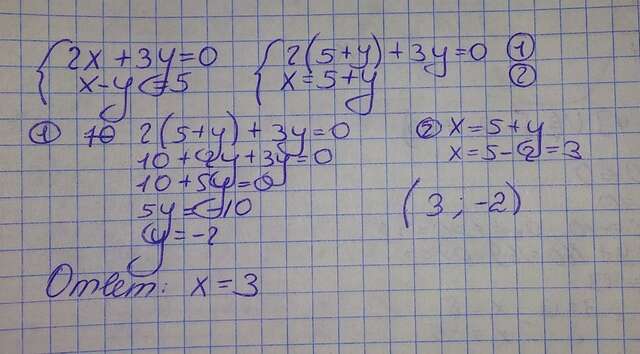 2x + 3y = 0
x - y = 5
2(5+y) + 3y = 0 ①
x = 5 + y ②
① 2(5+y) + 3y = 0
10 + 2y + 3y = 0
10 + 5y = 0
5y = -10
y = -2
② x = 5 + y
x = 5 - 2 = 3
(3; -2)
Ответ: x = 3